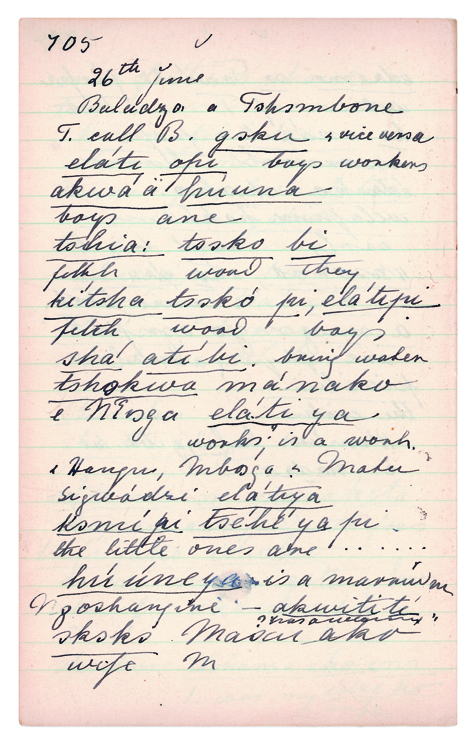 705
26th June
Baladzo a Tshsmbone
T. call B. gsku & vice versa
eláti opi boys workers
akwa ä húuna
boys are
tshia: tssko bi
fetch wood they
kitsha tsskó pi, elátipi
fetch wood boys
shá atíbi. bring water
tshokwa mánako
e eláti ya
works? is a work.
Hangu, Mbosga & Matu
Sigwádzi elátiya
ksmípi tséhé ya pi
the little ones are .......
hú úneya is a married m
Ngoshanginé - akwitití
sksks Masar ako
wife M